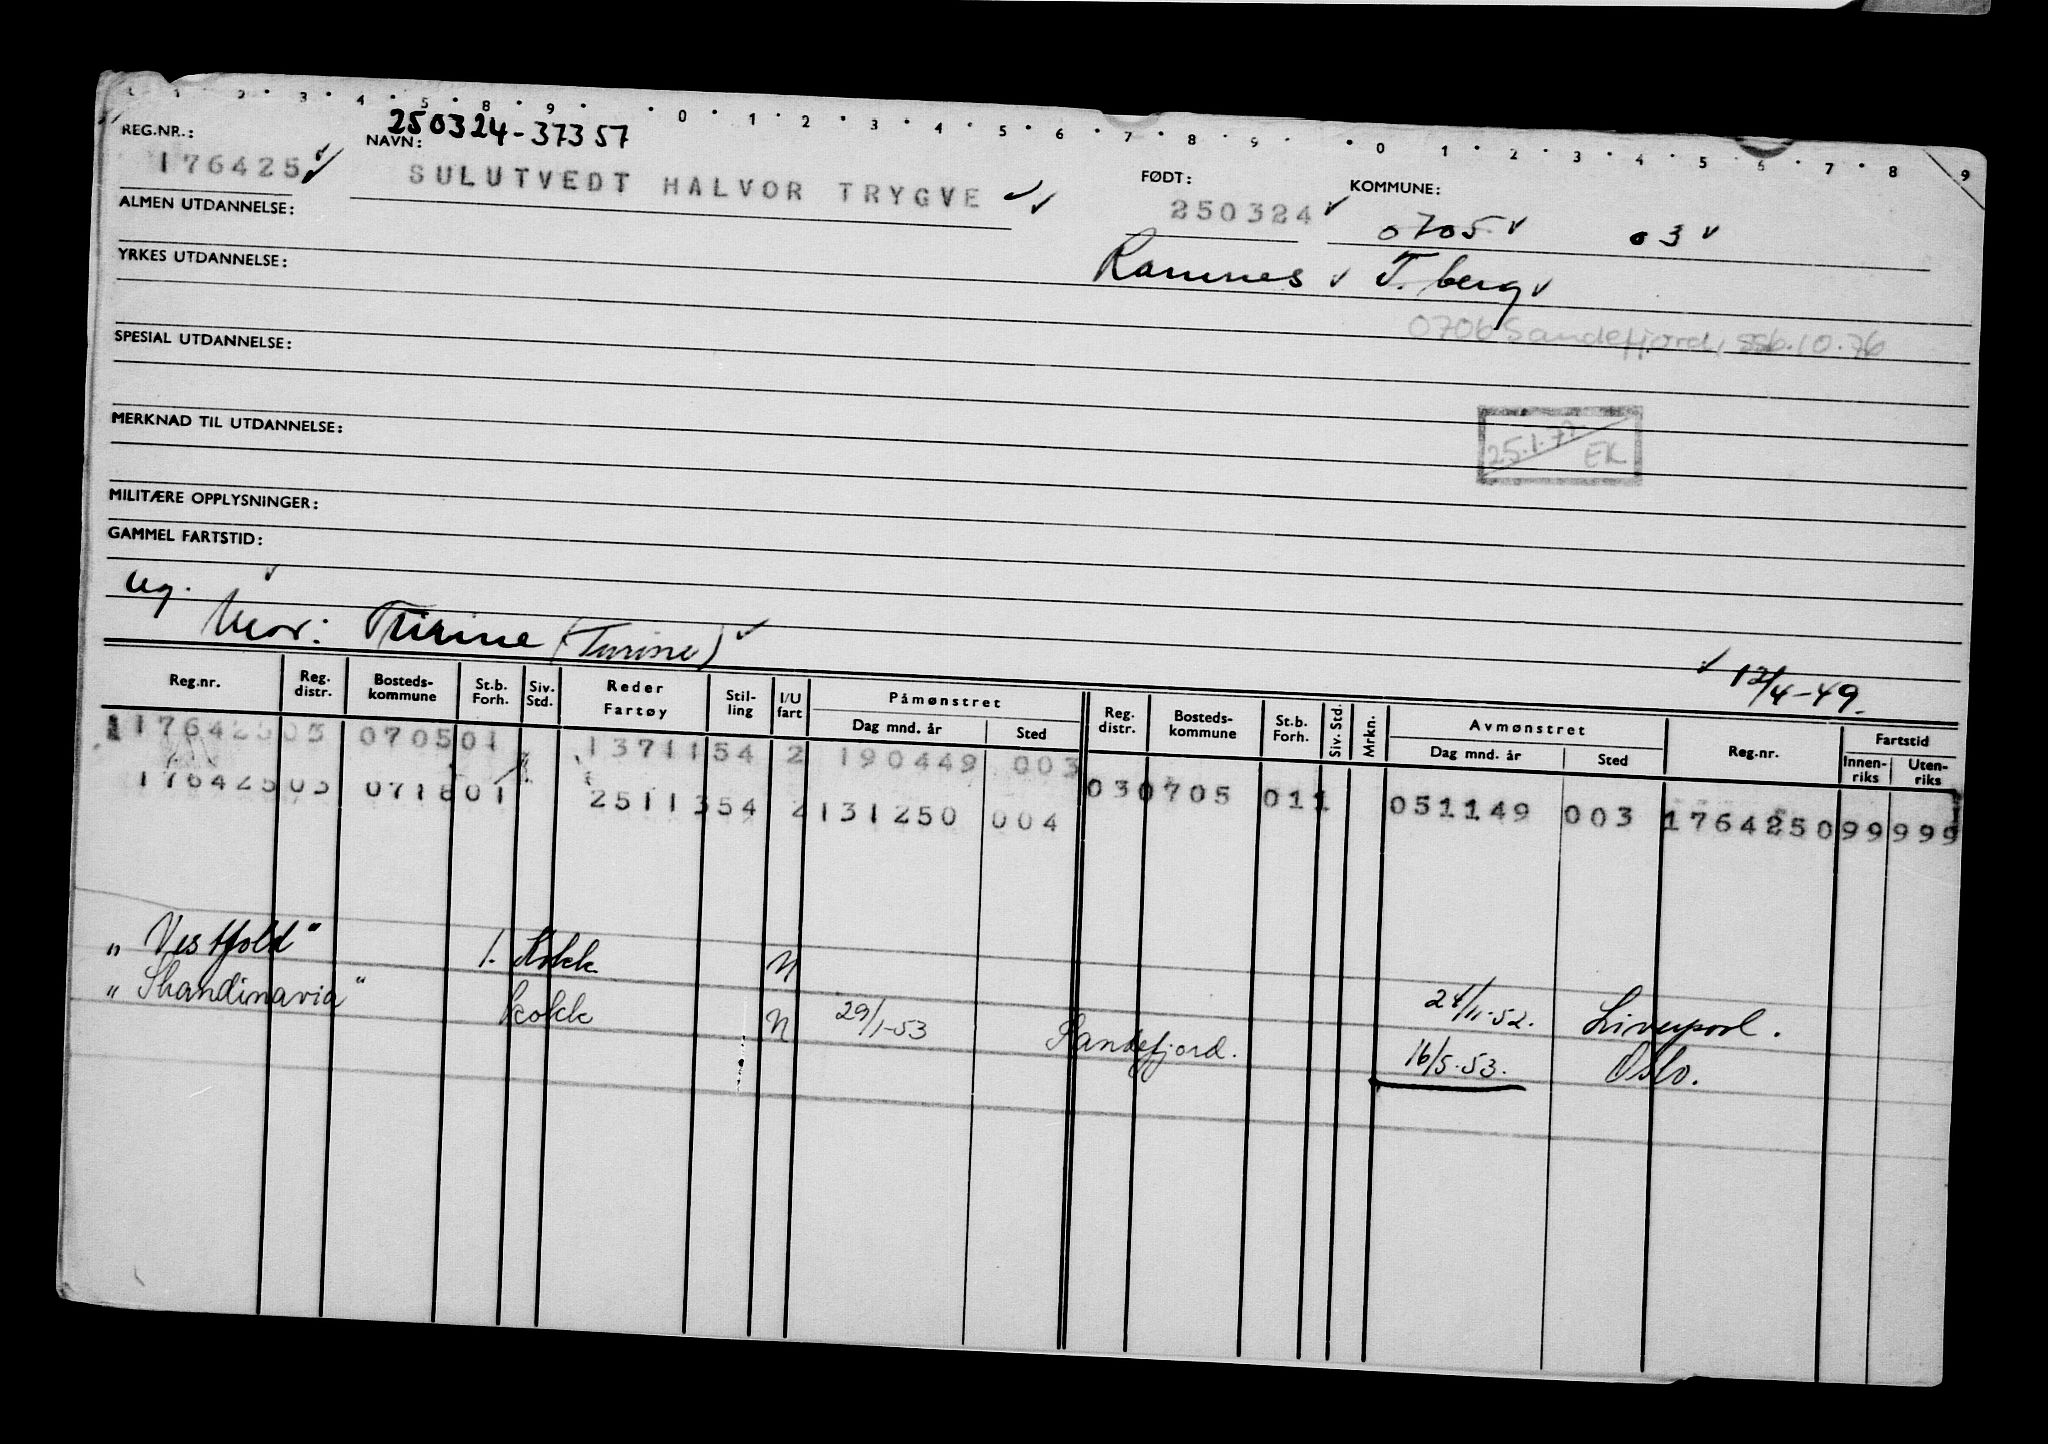 1 2 3 4 5 8 9 0 1 2 3 4 5 6 7 8 9 0 1 2 3 4 5 6 7 8 9
REG.NR.: NAVN: 250324-37357 FØDT: KOMMUNE:
176425 SULUTVEDT HALVOR TRYGVE 250324 0705 03
ALMEN UTDANNELSE:
YRKES UTDANNELSE: Ramnes T.berg
0706 Sandefjord, SSB.10.76
SPESIAL UTDANNELSE:
MERKNAD TIL UTDANNELSE:
25.1.77 EK
MILITÆRE OPPLYSNINGER:
GAMMEL FARTSTID:
ug.
Mor: Thirine (Turine)
12/4-49.
Reg.nr. Reg. distr. Bosteds-kommune St.b. Forh. Siv. Std. Reder Fartøy Stil-ling I/U fart Påmønstret Dag mnd. år Sted Reg. distr. Bosteds-kommune St.b. Forh. Siv. Std. Mrkn. Avmønstret Dag mnd. år Sted Reg.nr. Fartstid Innen-riks Uten-riks
117642505 070501 1371154 2 190449 003
030705 011 051149 003 176425099999
2511354 2131250 004
„Vestfold" 1. Kokk N 24/11-52. Liverpool.
„Skandinavia" kokk N 29/1-53 Sandefjord. 16/5-53. Oslo.